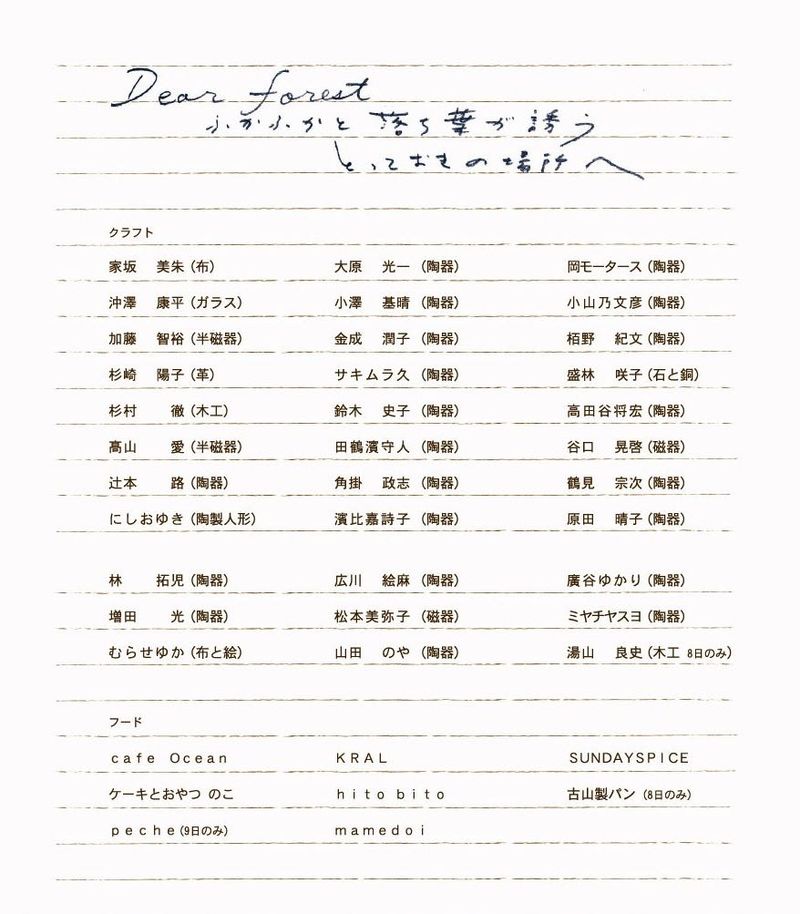 Dear forest
ふかふかと 落ち葉が誘う
とっておきの場所へ
クラフト
家坂　美朱（布） 大原　光一（陶器） 岡モータース（陶器）
沖澤　康平（ガラス） 小澤　基晴（陶器） 小山乃文彦（陶器）
加藤　智裕（半磁器） 金成　潤子（陶器） 栢野　紀文（陶器）
杉崎　陽子（革） サキムラ久（陶器） 盛林　咲子（石と銅）
杉村　徹（木工） 鈴木　史子（陶器） 高田谷将宏（陶器）
髙山　愛（半磁器） 田鶴濱守人（陶器） 谷口　晃啓（磁器）
辻本　路（陶器） 角掛　政志（陶器） 鶴見　宗次（陶器）
にしおゆき（陶製人形） 濱比嘉詩子（陶器） 原田　晴子（陶器）
林　拓児（陶器） 広川　絵麻（陶器） 廣谷ゆかり（陶器）
増田　光（陶器） 松本美弥子（磁器） ミヤチヤスヨ（陶器）
むらせゆか（布と絵） 山田　のや（陶器） 湯山　良史（木工 8日のみ）
フード
cafe Ocean KRAL SUNDAYSPICE
ケーキとおやつ のこ hito bito 古山製パン（8日のみ）
peche（9日のみ） mamedoi